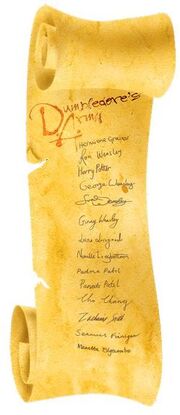 Dumbledore's
Army
Hermione Granger
Ron Weasley
Harry Potter
George Weasley
Fred Weasley
Ginny Weasley
Luna Lovegood
Neville Longbottom
Padma Patil
Parvati Patil
Cho Chang
Zacharias Smith
Seamus Finnigan
Marietta Edgecombe